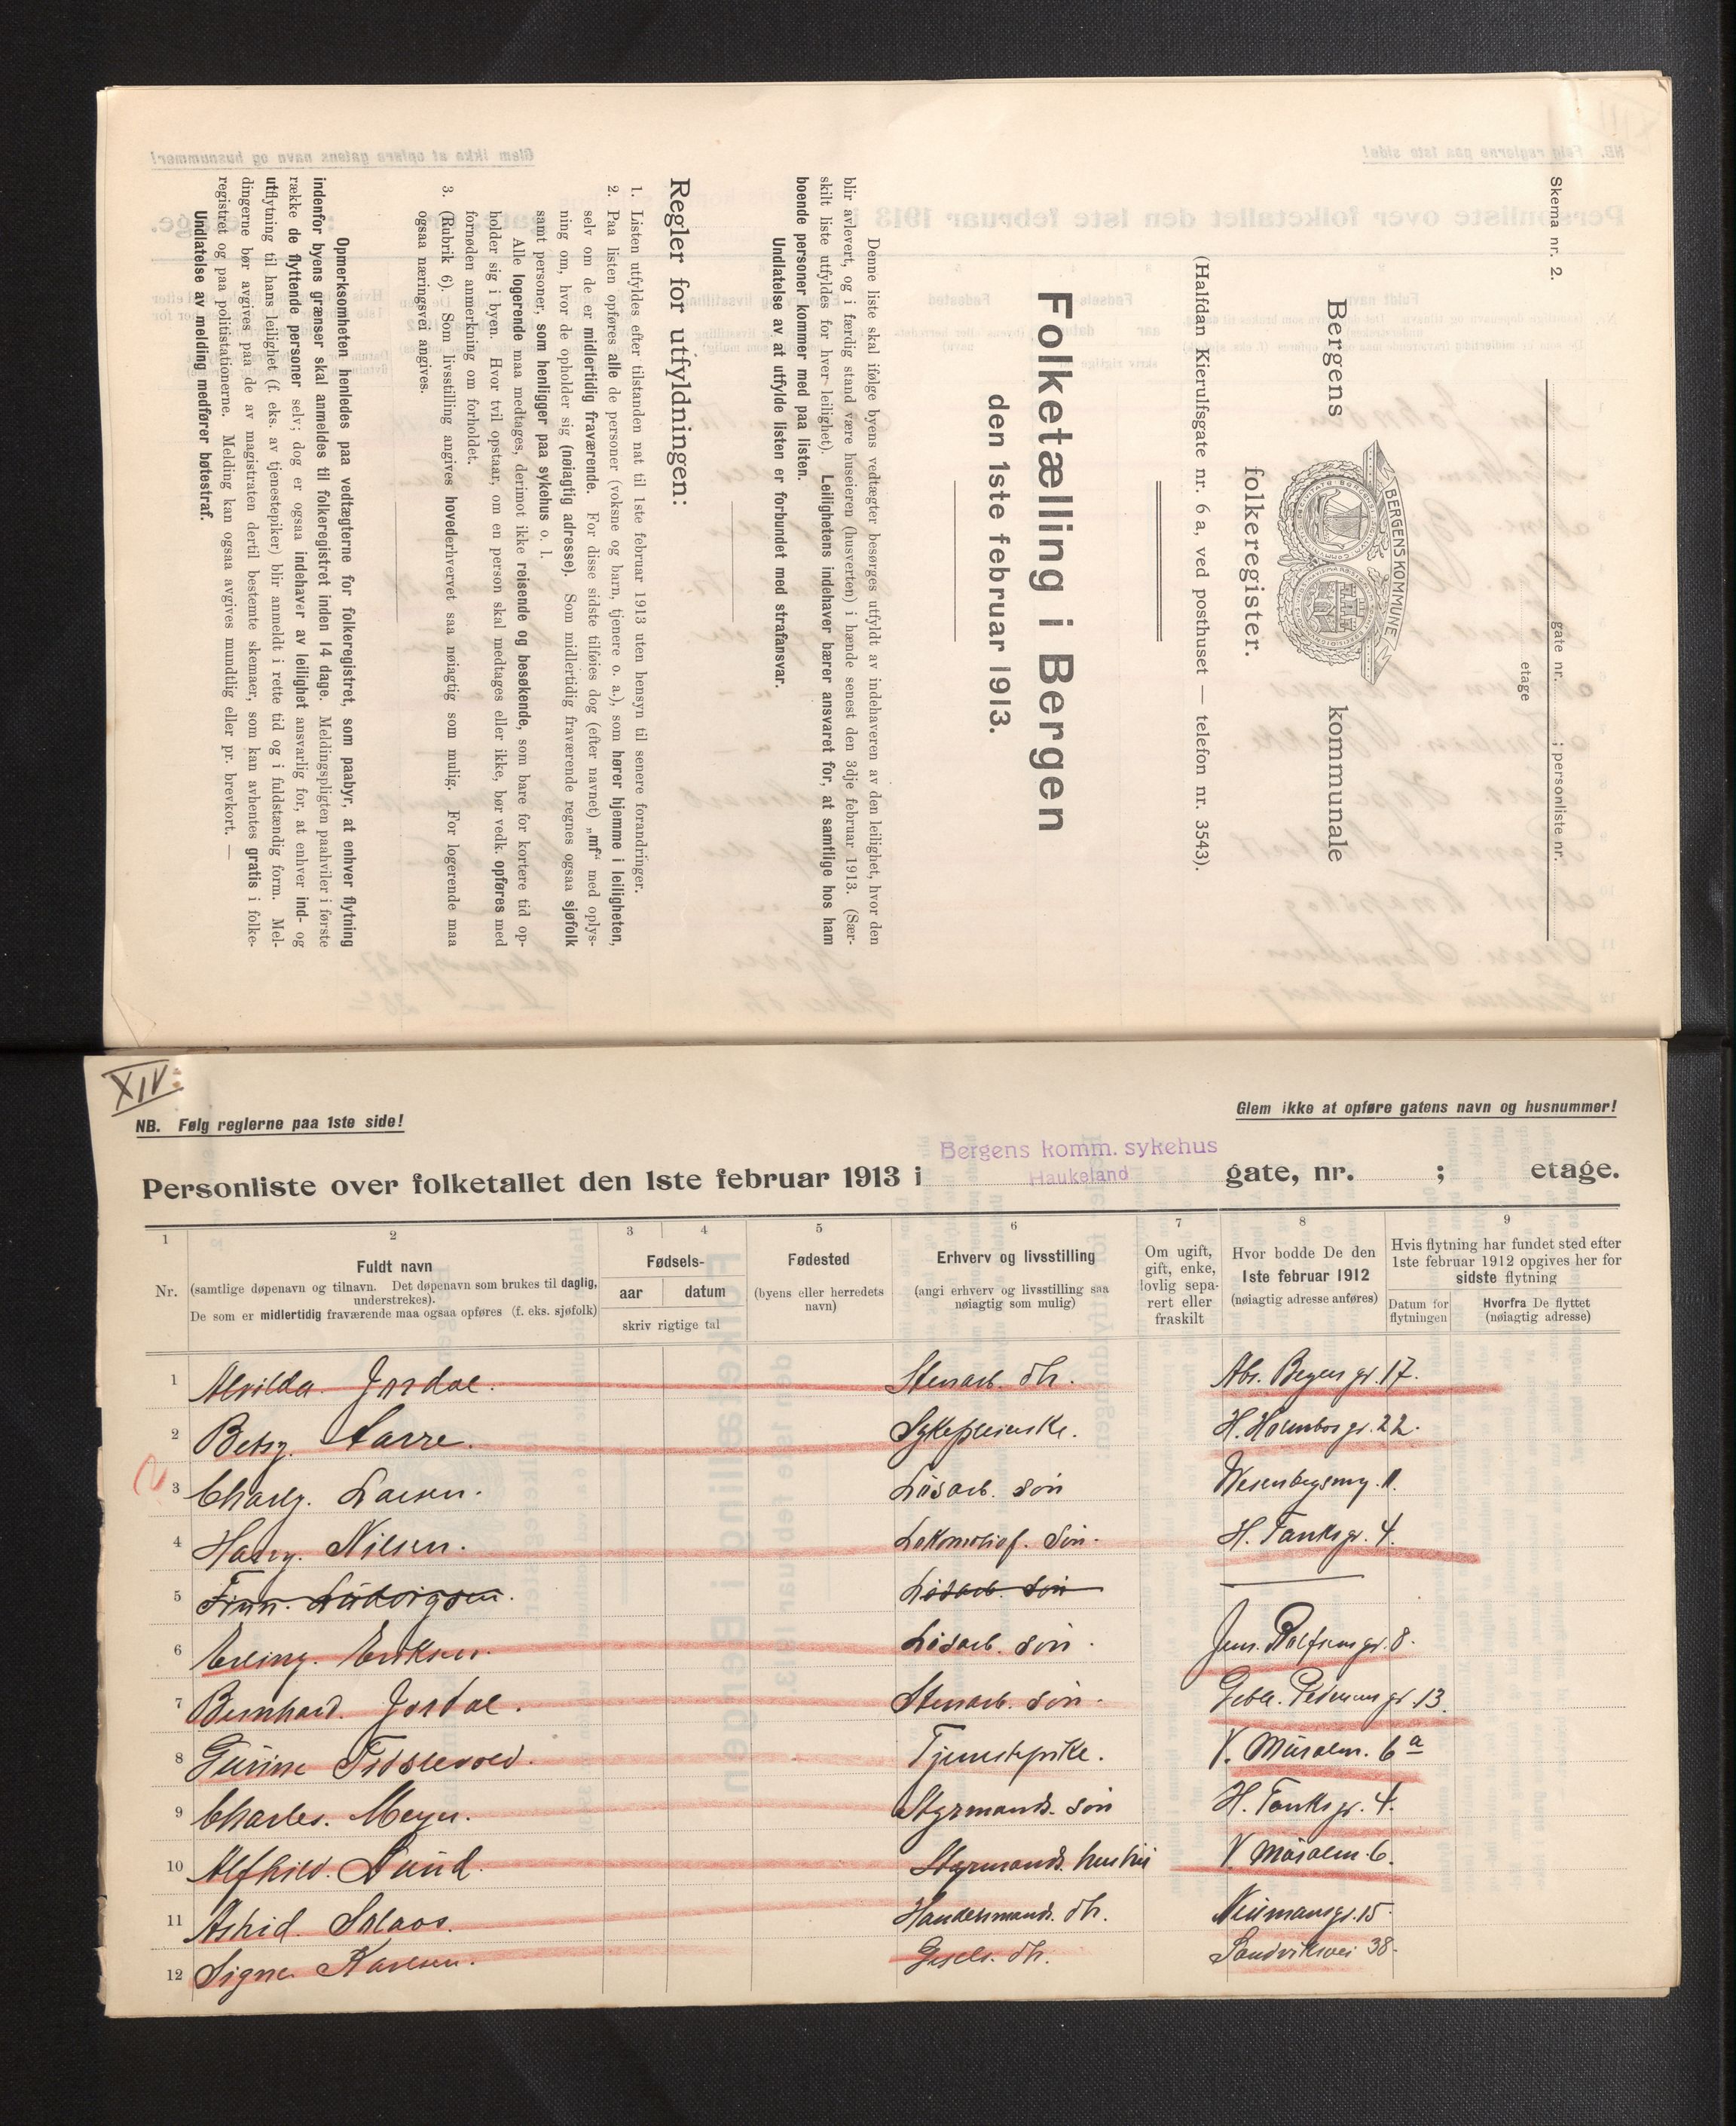 Skema nr. 2.
gate nr. i personliste nr.
etage
BERGENS KOMMUNE
Bergens kommunale
folkeregister.
(Halfdan Kierulfsgate nr. 6 a, ved posthuset — telefon nr. 3543).
Folketælling i Bergen
den 1ste februar 1913.
Denne liste skal ifølge byens vedtægter besørges utfyldt av indehaveren av den leilighet, hvor den
blir avlevert, og i færdig stand være huseieren (husverten) i hænde senest den 3dje februar 1913. (Sær-
skilt liste utfyldes for hver leilighet). Leilighetens indehaver bærer ansvaret for, at samtlige hos ham
boende personer kommer med paa listen.
Undlatelse av at utfylde listen er forbundet med strafansvar.
Regler for utfyldningen:
1. Listen utfyldes efter tilstanden nat til 1ste februar 1913 uten hensyn til senere forandringer.
2. Paa listen opføres alle de personer (voksne og barn, tjenere o. a.), som hører hjemme i leiligheten,
selv om de er midlertidig fraværende. For disse sidste tilføies dog (efter navnet) „mf“ med oplys-
ning om, hvor de opholder sig (nøiagtig adresse). Som midlertidig fraværende regnes ogsaa sjøfolk
samt personer, som henligger paa sykehus o. l.
Alle logerende maa medtages, derimot ikke reisende og besøkende, som bare for kortere tid op-
holder sig i byen. Hvor tvil opstaar, om en person skal medtages eller ikke, bør vedk. opføres med
fornøden anmerkning om forholdet.
3. (Rubrik 6). Som livsstilling angives hovederhvervet saa nøiagtig som mulig. For logerende maa
ogsaa næringsvei angives.
Opmerksomheten henledes paa vedtægterne for folkeregistret, som paabyr, at enhver flytning
indenfor byens grænser skal anmeldes til folkeregistret inden 14 dage. Meldingspligten paahviler i første
række de flyttende personer selv; dog er ogsaa indehaver av leilighet ansvarlig for, at enhver ind- og
utflytning til hans leilighet (f. eks. av tjenestepiker) blir anmeldt i rette tid og i fuldstændig form. Mel-
dingerne bør avgives paa de av magistraten dertil bestemte skemaer, som kan avhentes gratis i folke-
registret og paa politistationerne. Melding kan ogsaa avgives mundtlig eller pr. brevkort. —
Undlatelse av melding medfører bøtestraf.
XIV:
NB. Følg reglerne paa 1ste side!
Glem ikke at opføre gatens navn og husnummer!
Personliste over folketallet den 1ste februar 1913 i Bergens komm. sykehus Haukeland gate, nr. ; etage.
1 2 3 4 5 6 7 8 9
Nr.
Fuldt navn
(samtlige døpenavn og tilnavn. Det døpenavn som brukes til daglig,
understrekes).
De som er midlertidig fraværende maa ogsaa opføres (f. eks. sjøfolk)
Fødsels-
aar datum
skriv rigtige tal
Fødested
(byens eller herredets
navn)
Erhverv og livsstilling
(angi erhverv og livsstilling saa
nøiagtig som mulig)
Om ugift,
gift, enke,
lovlig sepa-
rert eller
fraskilt
Hvor bodde De den
1ste februar 1912
(nøiagtig adresse anføres)
Hvis flytning har fundet sted efter
1ste februar 1912 opgives her for
sidste flytning
Datum for
flytningen
Hvorfra De flyttet
(nøiagtig adresse)
1 Alvilda. Jordal. Stenarb. dtr. Abs. Beyers gt. 17.
2 Betsy. Aarre. Sykepleierske. H. Holmboes gt. 22.
3 Charly. Larsen. Løsarb. søn Wesenbergsmg. 11.
4 Harry. Nilsen. Lokomotivf. Søn. H. Tanks gt. 4.
5 Finn. Ludvigsen. Løsarb. søn
6 Erling. Eriksen. Løsarb. søn. Jens. Rolfsens gt. 8.
7 Bernhard. Jordal. Stenarb. søn. Geble. Pedersens gt. 13.
8 Gurine Tjenestepike. V. Muralm. 6 a
9 Charles. Meyer. Styrmands. søn H. Tanks gt. 4.
10 Alfhild. Lund. Styrmands. hustru V. Muralm. 6.
11 Astrid. Solaas. Handelsmands. dtr. Neumansgt. 15.
12 Signe. Karlsen. Gjesels. dtr. Sandviksvei 38.